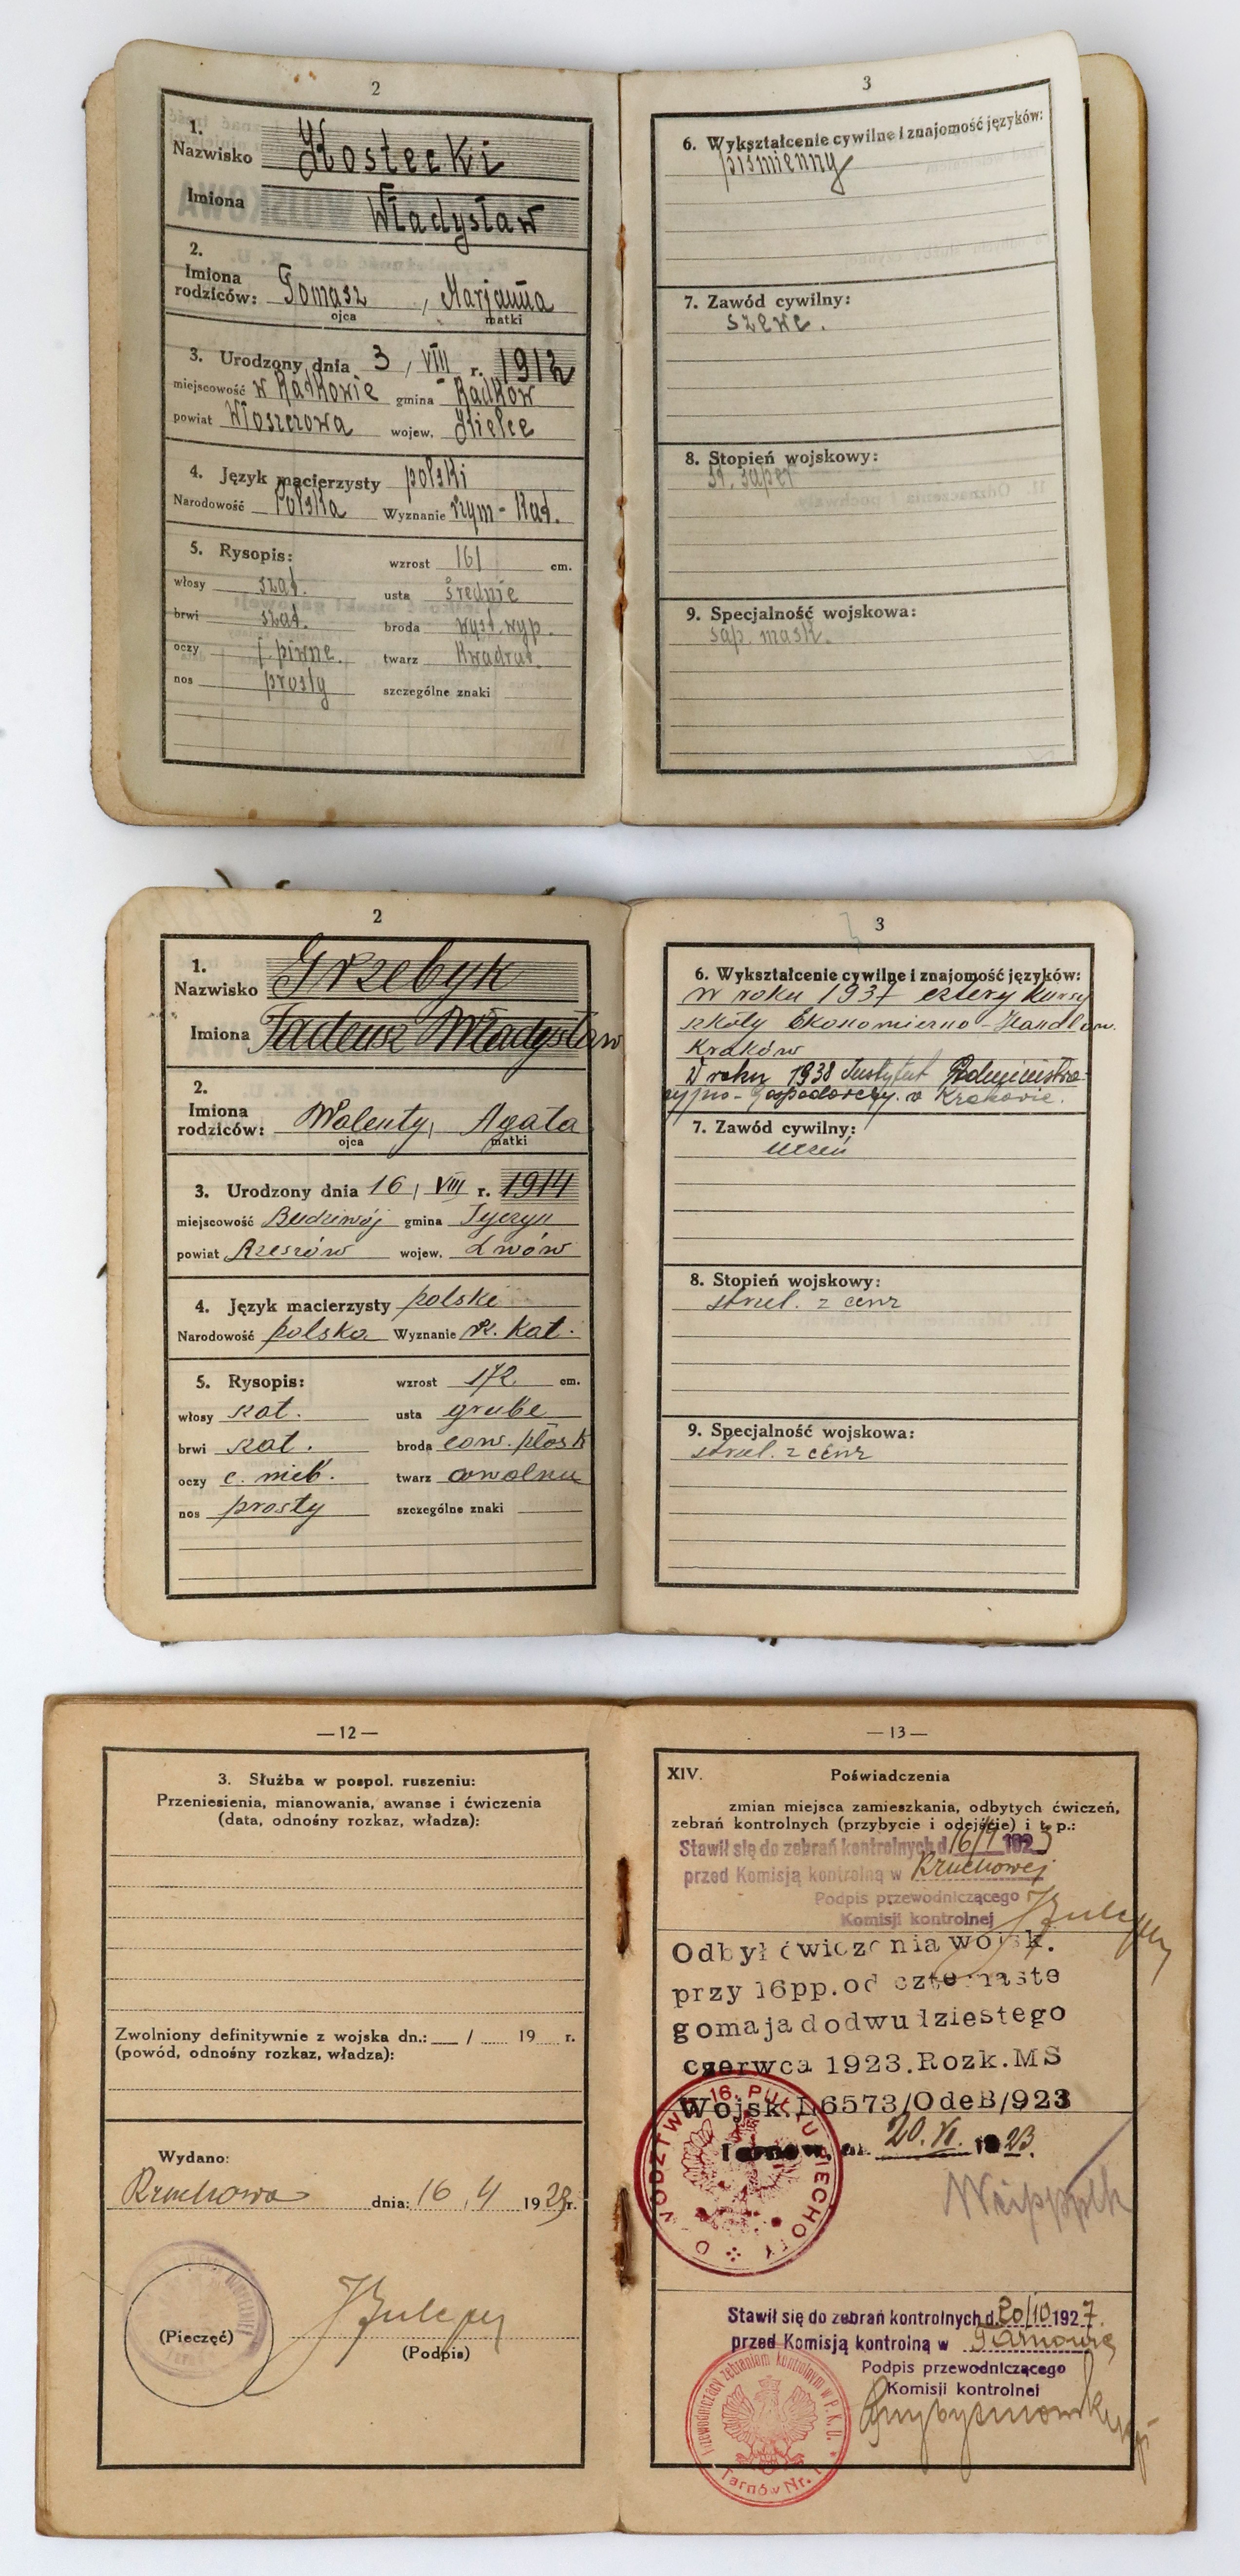 2
1.
Nazwisko Kostecki
Imiona Władysław
2.
Imiona
rodziców: Tomasz, Marjanna
ojca matki
3. Urodzony dnia 3, VIII r. 1912
miejscowość w Radkowie gmina Radków
powiat Włoszczowa wojew. Kielce
4. Język macierzysty polski
Narodowość Polska Wyznanie rzym-kat.
5. Rysopis: wzrost 161 cm.
włosy szat. usta średnie
brwi szat. broda wyst. wyp.
oczy j. piwne. twarz kwadrat.
nos prosty szczególne znaki
3
6. Wykształcenie cywilne i znajomość języków:
piśmienny
7. Zawód cywilny:
szewc.
8. Stopień wojskowy:
st. saper
9. Specjalność wojskowa:
sap. mask.
2
1.
Nazwisko Grzebyk
Imiona Tadeusz Władysław
2.
Imiona
rodziców: Walenty, Agata
ojca matki
3. Urodzony dnia 16, VIII r. 1914
miejscowość Budziwój gmina Tyczyn
powiat Rzeszów wojew. Lwów
4. Język macierzysty polski
Narodowość polska Wyznanie R. kat.
5. Rysopis: wzrost 172 cm.
włosy szat. usta grube
brwi szat. broda płask
oczy c. nieb. twarz owalna
nos prosty szczególne znaki
3
6. Wykształcenie cywilne i znajomość języków:
W roku 1937 cztery kursy
szkoły Ekonomiczno-Handlow.
Kraków
W roku 1938 Instytut Administra-
cyjno-Gospodarczy. w Krakowie.
7. Zawód cywilny:
uczeń
8. Stopień wojskowy:
strzel. z cenz
9. Specjalność wojskowa:
strzel. z cenz
—12—
3. Służba w pospol. ruszeniu:
Przeniesienia, mianowania, awanse i ćwiczenia
(data, odnośny rozkaz, władza):
Zwolniony definitywnie z wojska dn.: / 19 r.
(powód, odnośny rozkaz, władza):
Wydano:
Rzuchowa dnia: 16, 4 1923 r.
(Pieczęć)
(Podpis)
—13—
XIV. Poświadczenia
zmian miejsca zamieszkania, odbytych ćwiczeń,
zebrań kontrolnych (przybycie i odejście) i t. p.:
Stawił się do zebrań kontrolnych d. 16/4 1923
przed Komisją kontrolną w Rzuchowej
Podpis przewodniczącego
Komisji kontrolnej
Odbył ćwiczenia wojsk.
przy 16pp. od czternaste
go maja do dwudziestego
czerwca 1923. Rozk. MS
Wojsk. L6573/OdeB/923
Tarnów, dn. 20. VI. 1923.
DOWÓDZTWO 16. PUŁKU PIECHOTY
Stawił się do zebrań kontrolnych d. 20/10 1927.
przed Komisją kontrolną w Tarnowie
Podpis przewodniczącego
Komisji kontrolnej
Przewodniczący zebraniom kontrolnym w P.K.U.
Tarnów Nr. 1